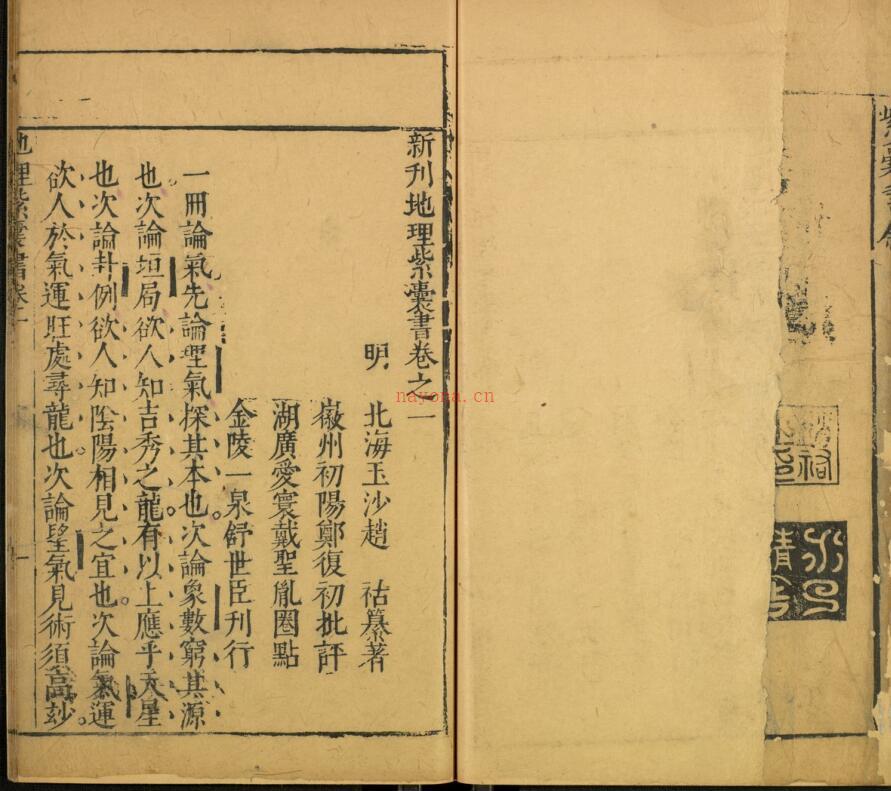 新刊地理紫囊書卷之一
明　北海玉沙趙　祜纂著
徽州初陽鄭復初批評
湖廣愛寰戴聖胤圈點
金陵一泉舒世臣刊行
一冊論氣先論理氣探其本也次論象數窮其源
也次論垣局欲人知吉秀之龍有以上應乎天星
也次論卦例欲人知陰陽相見之宜也次論氣運
欲人於氣運旺處尋龍也次論望氣見術須高玅
地理紫囊書卷一
一
nayona.cn